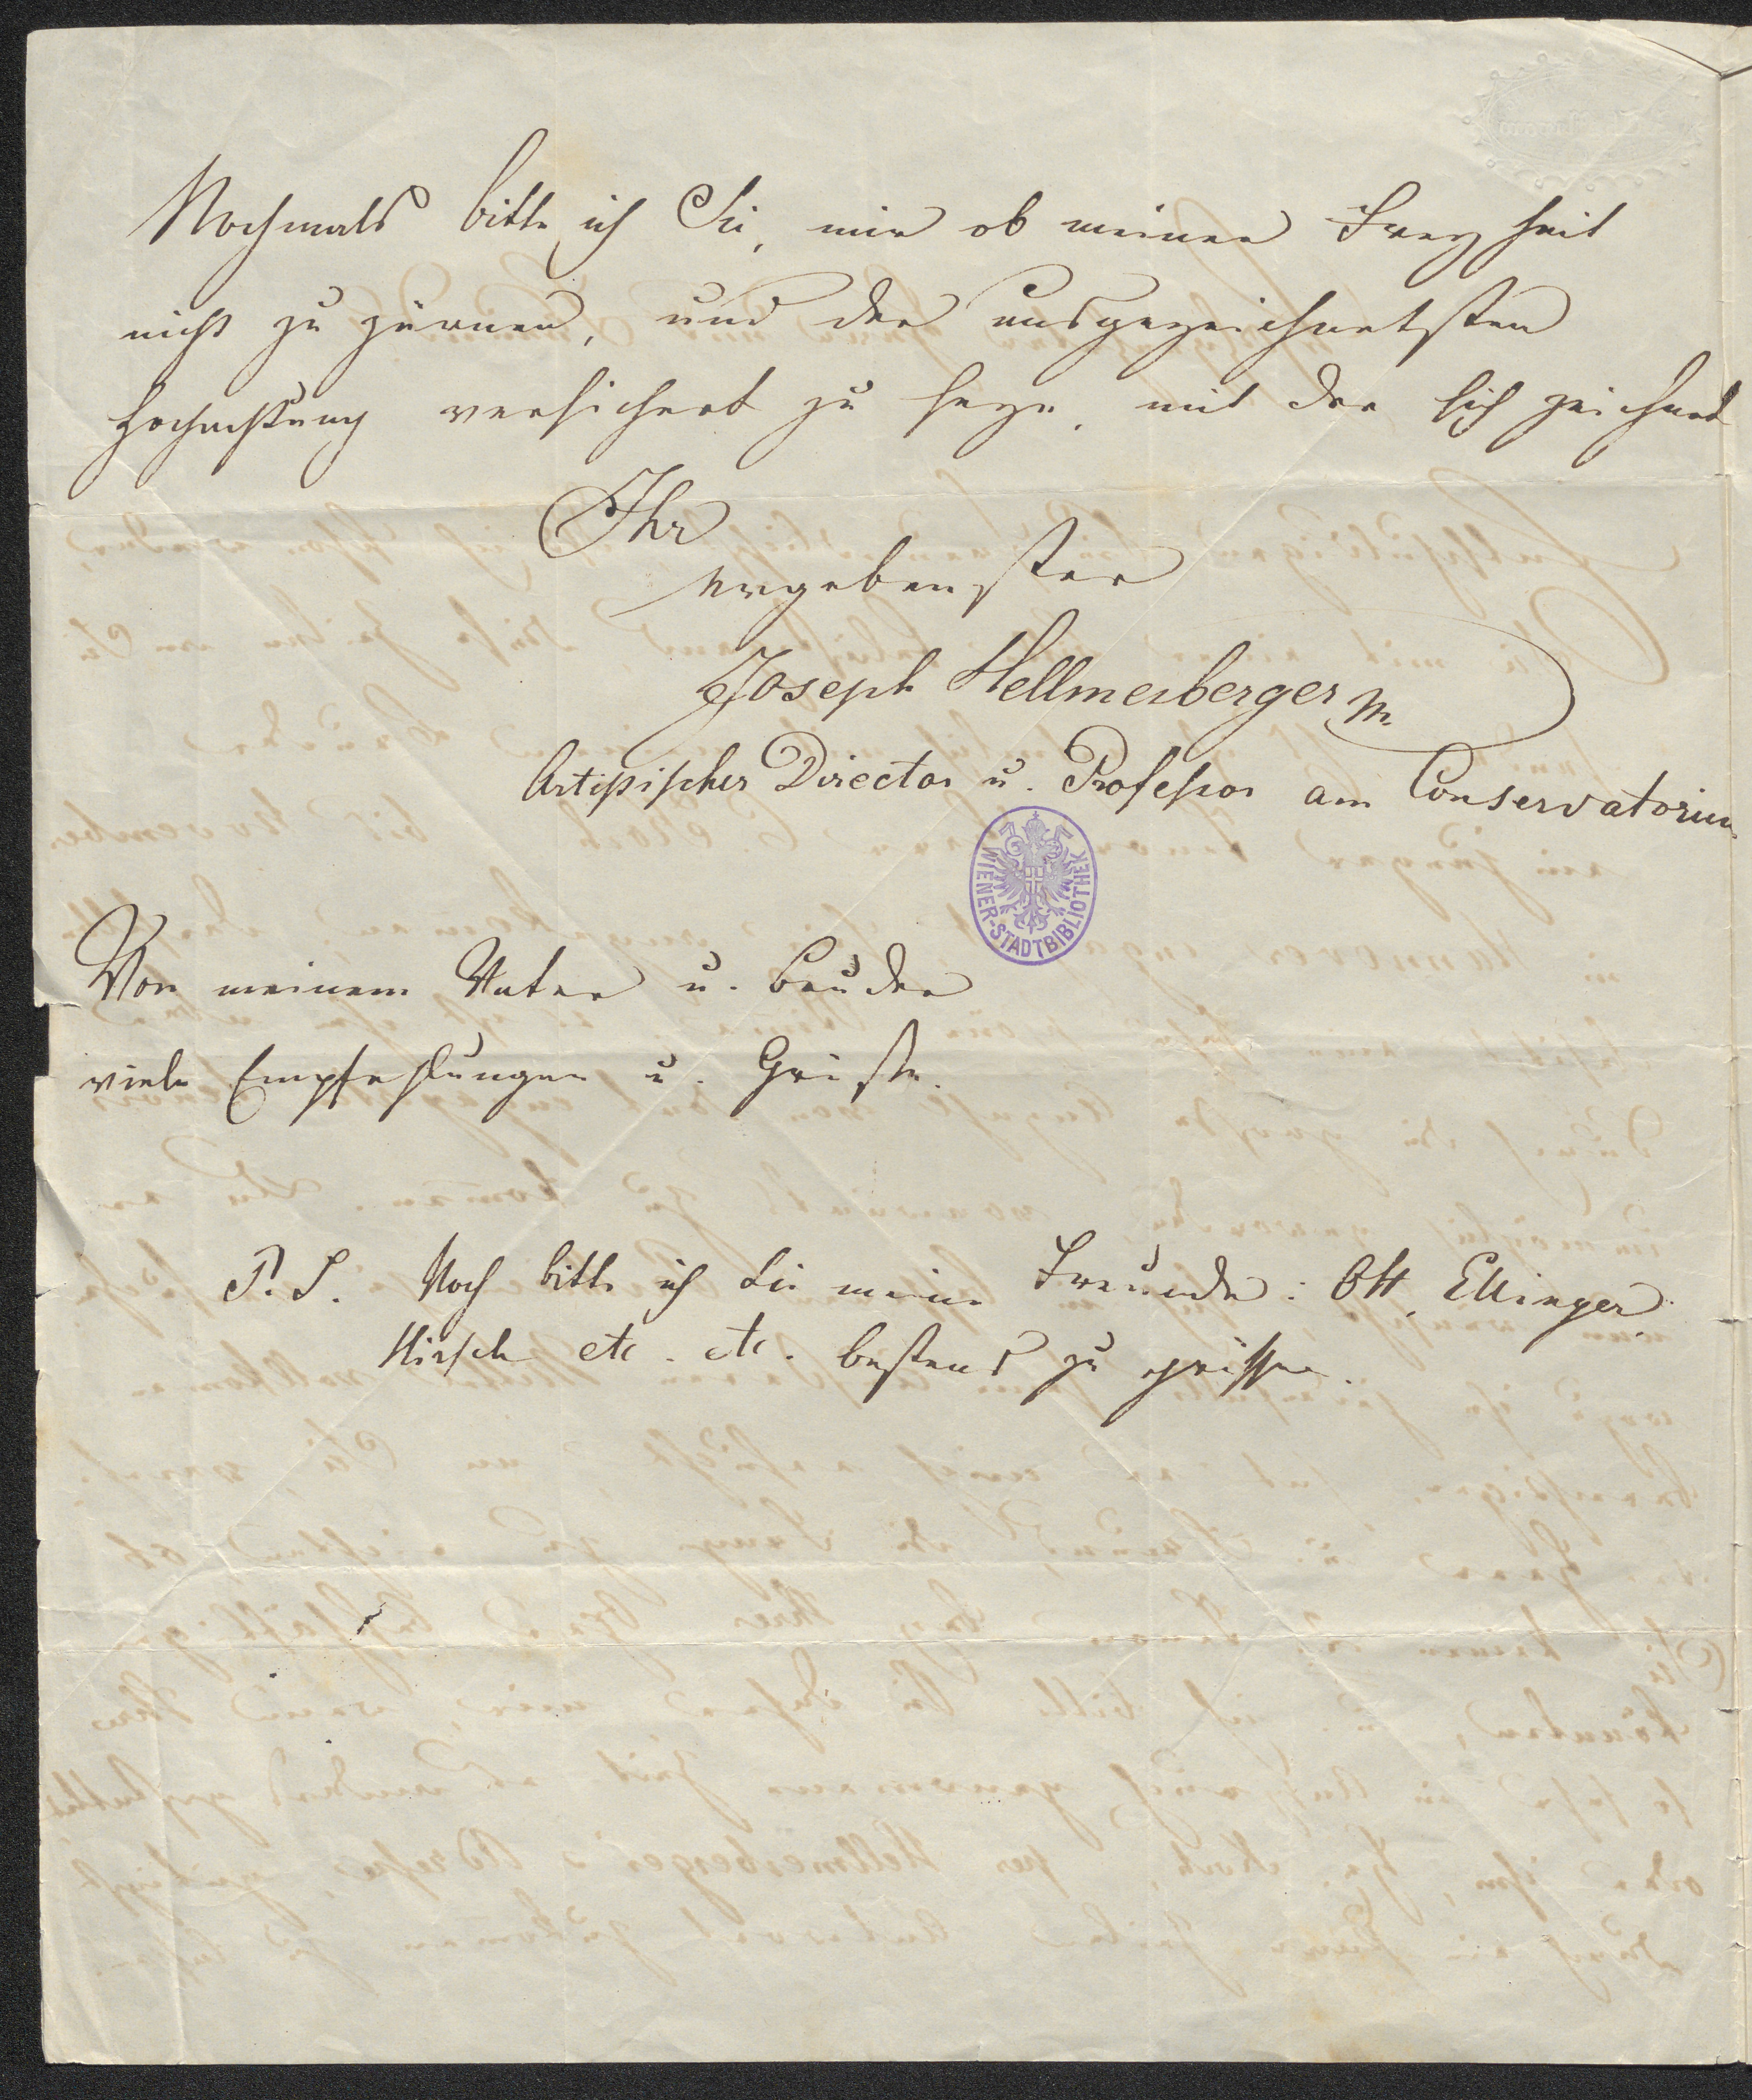 Nochmals bitte ich Sie, mir ob meiner Freyheit
nicht zu zürnen, und der ausgezeichnetsten
Hochachtung versichert zu seyn, mit der sich zeichnet
Ihr
ergebenster
Joseph Hellmesberger
Artistischer Director u. Professor am Conservatorium
WIENER-STADTBIBLIOTHEK
Von meinem Vater u. Bruder
viele Empfehlungen u. Grüße.
P.S. Noch bitte ich Sie meine Freunde: Ott, Ellinger,
Hirsch etc. etc. bestens zu grüssen.